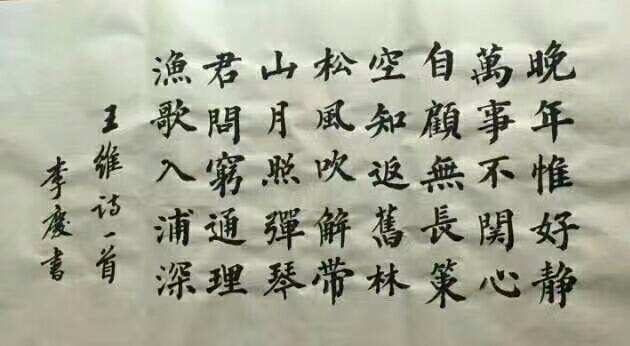 晚年惟好静
萬事不関心
自顧無長策
空知返舊林
松風吹解带
山月照彈琴
君問窮通理
漁歌入浦深
王維诗一首
李慶書